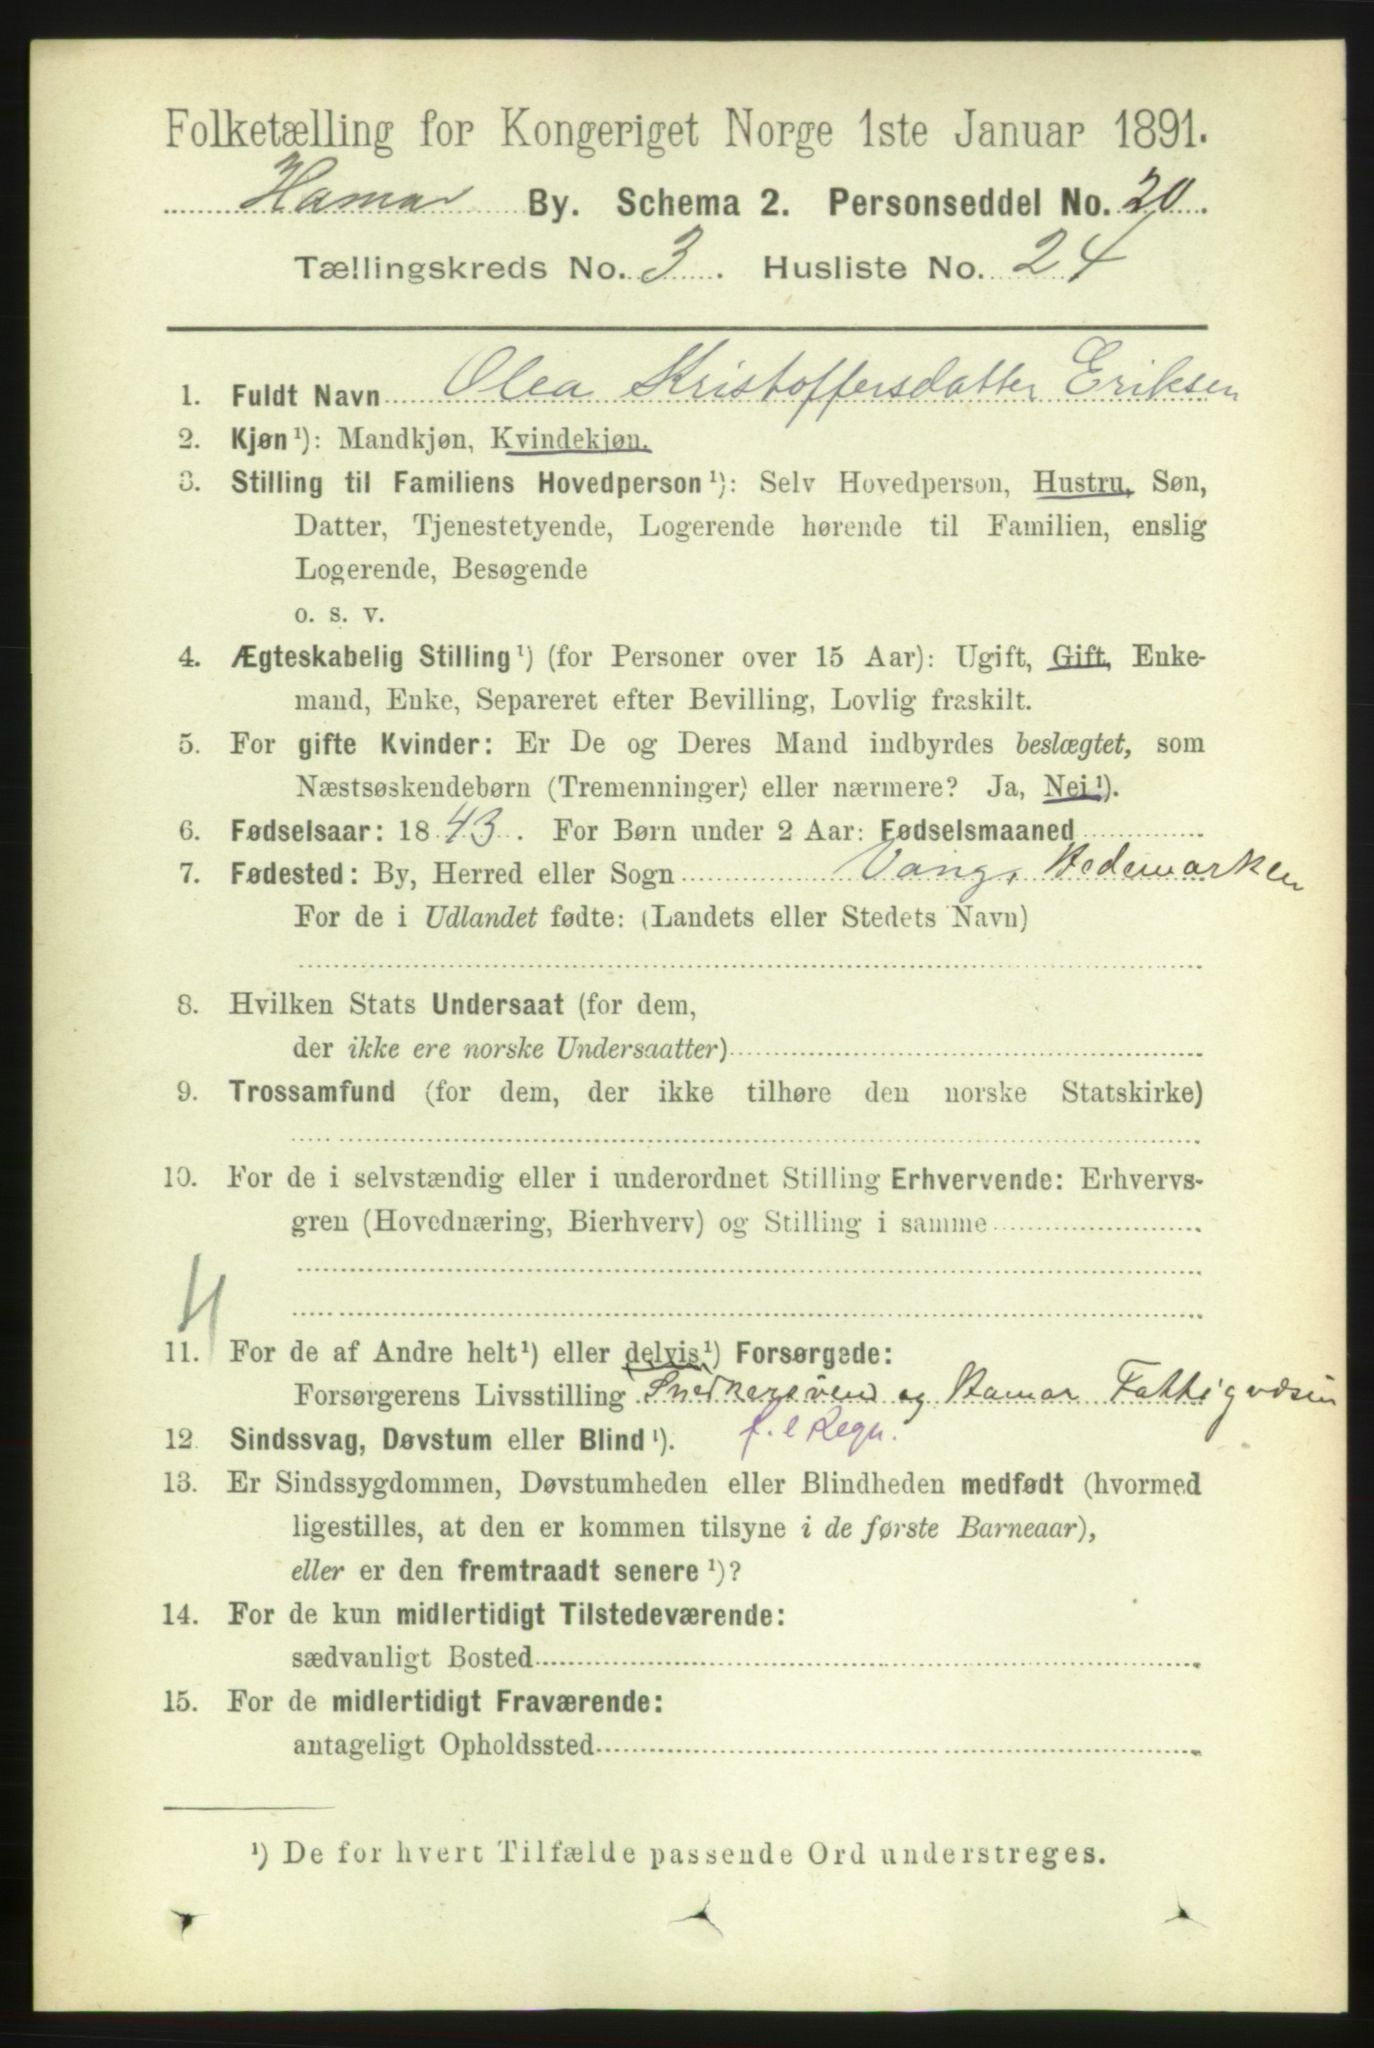 Folketælling for Kongeriget Norge 1ste Januar 1891.
Hamar By. Schema 2. Personseddel No. 20.
Tællingskreds No. 3. Husliste No. 24
1. Fuldt Navn Olea Kristoffersdatter Eriksen
2. Kjøn¹): Mandkjøn, Kvindekjøn.
3. Stilling til Familiens Hovedperson¹): Selv Hovedperson, Hustru, Søn,
Datter, Tjenestetyende, Logerende hørende til Familien, enslig
Logerende, Besøgende
o. s. v.
4. Ægteskabelig Stilling¹) (for Personer over 15 Aar): Ugift, Gift, Enke-
mand, Enke, Separeret efter Bevilling, Lovlig fraskilt.
5. For gifte Kvinder: Er De og Deres Mand indbyrdes beslægtet, som
Næstsøskendebørn (Tremenninger) eller nærmere? Ja, Nei¹).
6. Fødselsaar: 1843. For Børn under 2 Aar: Fødselsmaaned
7. Fødested: By, Herred eller Sogn Vang, Hedemarken
For de i Udlandet fødte: (Landets eller Stedets Navn)
8. Hvilken Stats Undersaat (for dem,
der ikke ere norske Undersaatter)
9. Trossamfund (for dem, der ikke tilhøre den norske Statskirke)
10. For de i selvstændig eller i underordnet Stilling Erhvervende: Erhvervs-
gren (Hovednæring, Bierhverv) og Stilling i samme
4
11. For de af Andre helt¹) eller delvis¹) Forsørgede:
Forsørgerens Livsstilling Snedkersvend og Hamar Fattigvæsen
f. e Regn.
12. Sindssvag, Døvstum eller Blind¹).
13. Er Sindssygdommen, Døvstumheden eller Blindheden medfødt (hvormed
ligestilles, at den er kommen tilsyne i de første Barneaar),
eller er den fremtraadt senere¹)?
14. For de kun midlertidigt Tilstedeværende:
sædvanligt Bosted
15. For de midlertidigt Fraværende:
antageligt Opholdssted
¹) De for hvert Tilfælde passende Ord understreges.